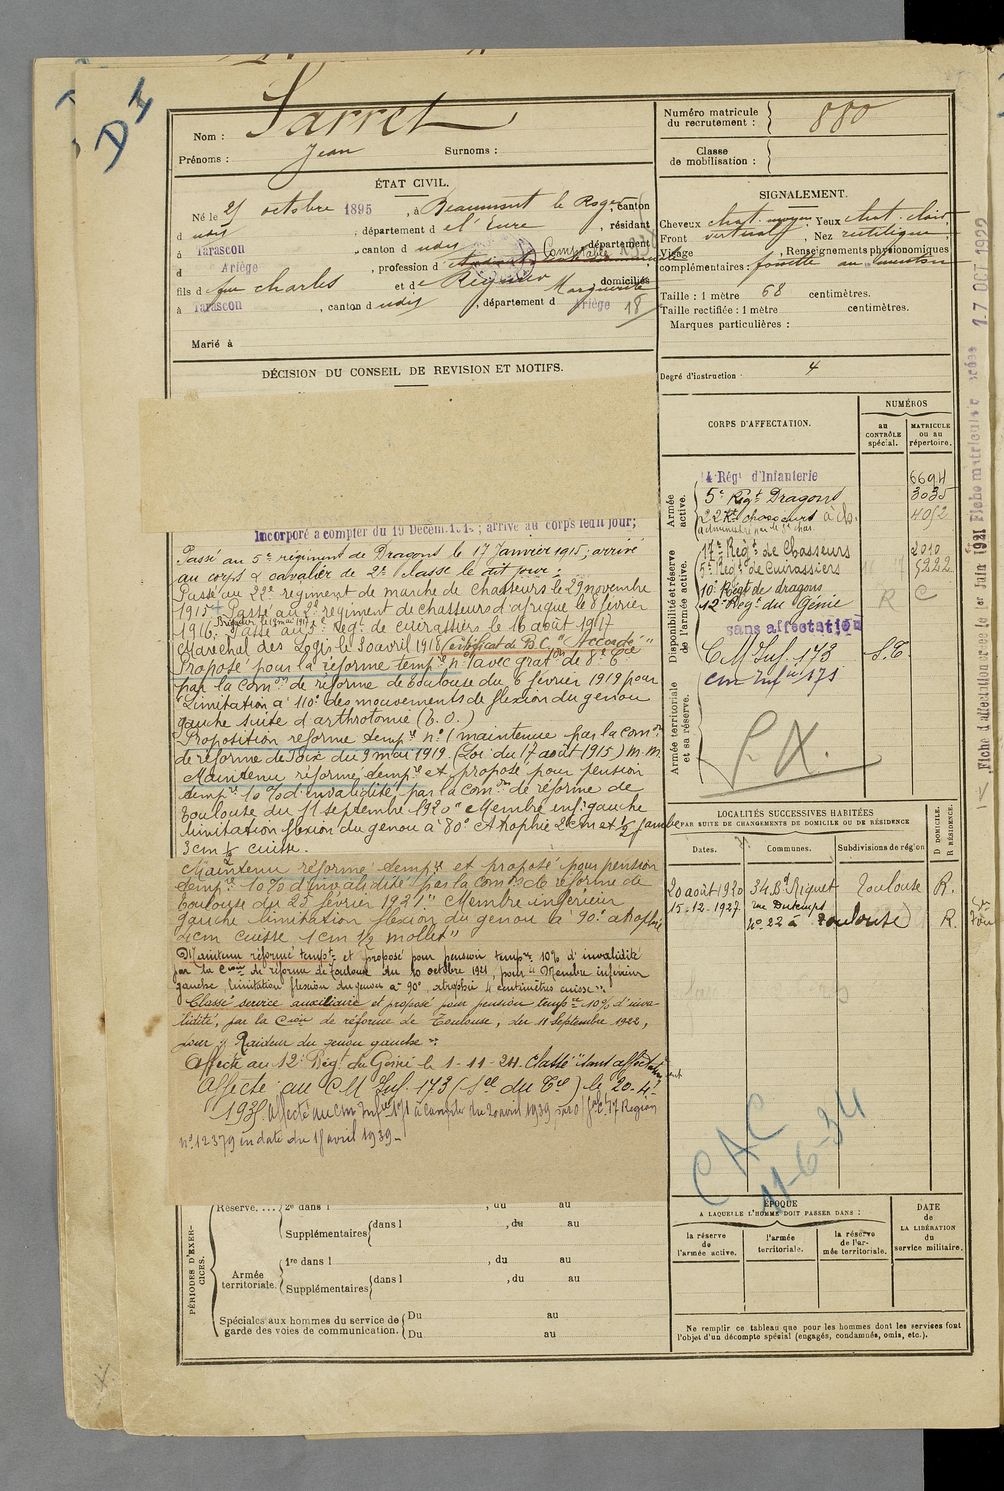 D
Nom : Sarret
Prénoms : Jean Surnoms :
Numéro matricule du recrutement : 880
Classe de mobilisation :
ÉTAT CIVIL.
Né le 25 octobre 1895, à Beaumont le Roger, canton
d udis, département d e l'Eure, résidant
à Tarascon, canton d udis, département
d Ariège, profession d Comptable
fils d e feu Charles et de Marguerite domiciliés
à Tarascon, canton d udis, département d Ariège 18
Marié à
SIGNALEMENT.
Cheveux chat. moyen Yeux chat. clair
Front vertical, Nez rectiligne
Visage , Renseignements physionomiques
complémentaires : fossette au menton
Taille : 1 mètre 68 centimètres.
Taille rectifiée : 1 mètre centimètres.
Marques particulières :
Degré d'instruction 4
DÉCISION DU CONSEIL DE REVISION ET MOTIFS.
Incorporé à compter du 19 Décem. ; arrivé au corps ledit jour;
Passé au 5e régiment de Dragons le 17 Janvier 1915, arrivé
au corps & cavalier de 2e classe le dit jour.
Passé au 22e régiment de marche de Chasseurs le 29 novembre
1915 + Passé au 2e régiment de chasseurs d'afrique le 8 février
1916. Brigadier le mai 1917 Passé au 5e Reg. de cuirassiers le 16 août 1917
Maréchal des Logis le 30 avril 1918 Certificat de B.C. "Accordé"
Proposé pour la réforme tempre n°1 avec graton de 8e Cie
par la Comon de réforme de Toulouse du 6 février 1919 pour
"Limitation à 110° des mouvements de flexion du genou
gauche suite d'arthrotomie (E.O.)
Proposition réforme tempre n°1 maintenue par la Comon
de réforme de Foix du 9 mai 1919. (Loi du 17 août 1915) M.M.
Maintenu réformé tempre et proposé pour pension
tempre 10% d'invalidité par la Comon de réforme de
Toulouse du 11 septembre 1920 "Membre infr gauche
limitation flexion du genou à 80° Atrophie 2cm et ½ jambe
3cm ½ cuisse.
Maintenu réformé tempre et proposé pour pension
tempre 10% d'invalidité par la Comon de réforme de
Toulouse du 23 février 1921 "Membre inférieur
gauche limitation flexion du genou à 90° atrophie
4cm cuisse 1cm ½ mollet"
Maintenu réformé tempre et proposé pour pension tempre 10% d'invalidité
par la Cion de réforme de Toulouse du 10 octobre 1921, pour "Membre inférieur
gauche, limitation flexion du genou à 90°, atrophie 4 centimètres cuisse".
Classé service auxiliaire et proposé pour pension tempre 10% d'inva-
lidité, par la Cion de réforme de Toulouse, du 11 Septembre 1922,
pour "Raideur du genou gauche".
Affecté au 12e Régt du Génie le 1-11-24. Classé "sans affectation"
Affecté au C M Inf. 173 (Son du Tre) le 20-4-
1935. Affecté au Cm Infie 171 à compter du 20 avril 1939, 17 Région
n° 12379 en date du 15 avril 1939.
CORPS D'AFFECTATION.
NUMÉROS
au CONTRÔLE spécial.
MATRICULE ou au répertoire.
Armée active.
14 Régt d'Infanterie 6694
5e Régt Dragons 3035
22 Rt chasseurs à ch. 4052
Disponibilité et réserve de l'armée active.
17e Régt de Chasseurs 2010
5e Régt de Cuirassiers 5222
10e Régt de dragons
12e Régt du Génie R C
sans affectation
Armée territoriale et sa réserve.
C M Inf. 173 S.T.
Cm Infie 171
P.X.
LOCALITÉS SUCCESSIVES HABITÉES
PAR SUITE DE CHANGEMENTS DE DOMICILE OU DE RÉSIDENCE
Dates. Communes. Subdivisions de région D DOMICILE. R RÉSIDENCE.
20 août 1920 34 Bd Riquet Toulouse R.
15-12-1927 rue Dutemps
No 22 à Toulouse R.
CAC
11-6-34
PÉRIODES D'EXERCICES.
Réserve. ... 2e dans l , du au
Supplémentaires dans l , du au
Armée territoriale. 1re dans l , du au
Supplémentaires dans l , du au
Spéciales aux hommes du service de garde des voies de communication. Du au
Du au
ÉPOQUE
A LAQUELLE L'HOMME DOIT PASSER DANS :
la réserve de l'armée active.
l'armée territoriale.
la réserve de l'armée territoriale.
DATE de LA LIBÉRATION du service militaire.
Ne remplir ce tableau que pour les hommes dont les services font
l'objet d'un décompte spécial (engagés, condamnés, omis, etc.).
Fiche d'affectation créée le 1er Juin 1921 Fiche matricule créée 17 OCT 1922